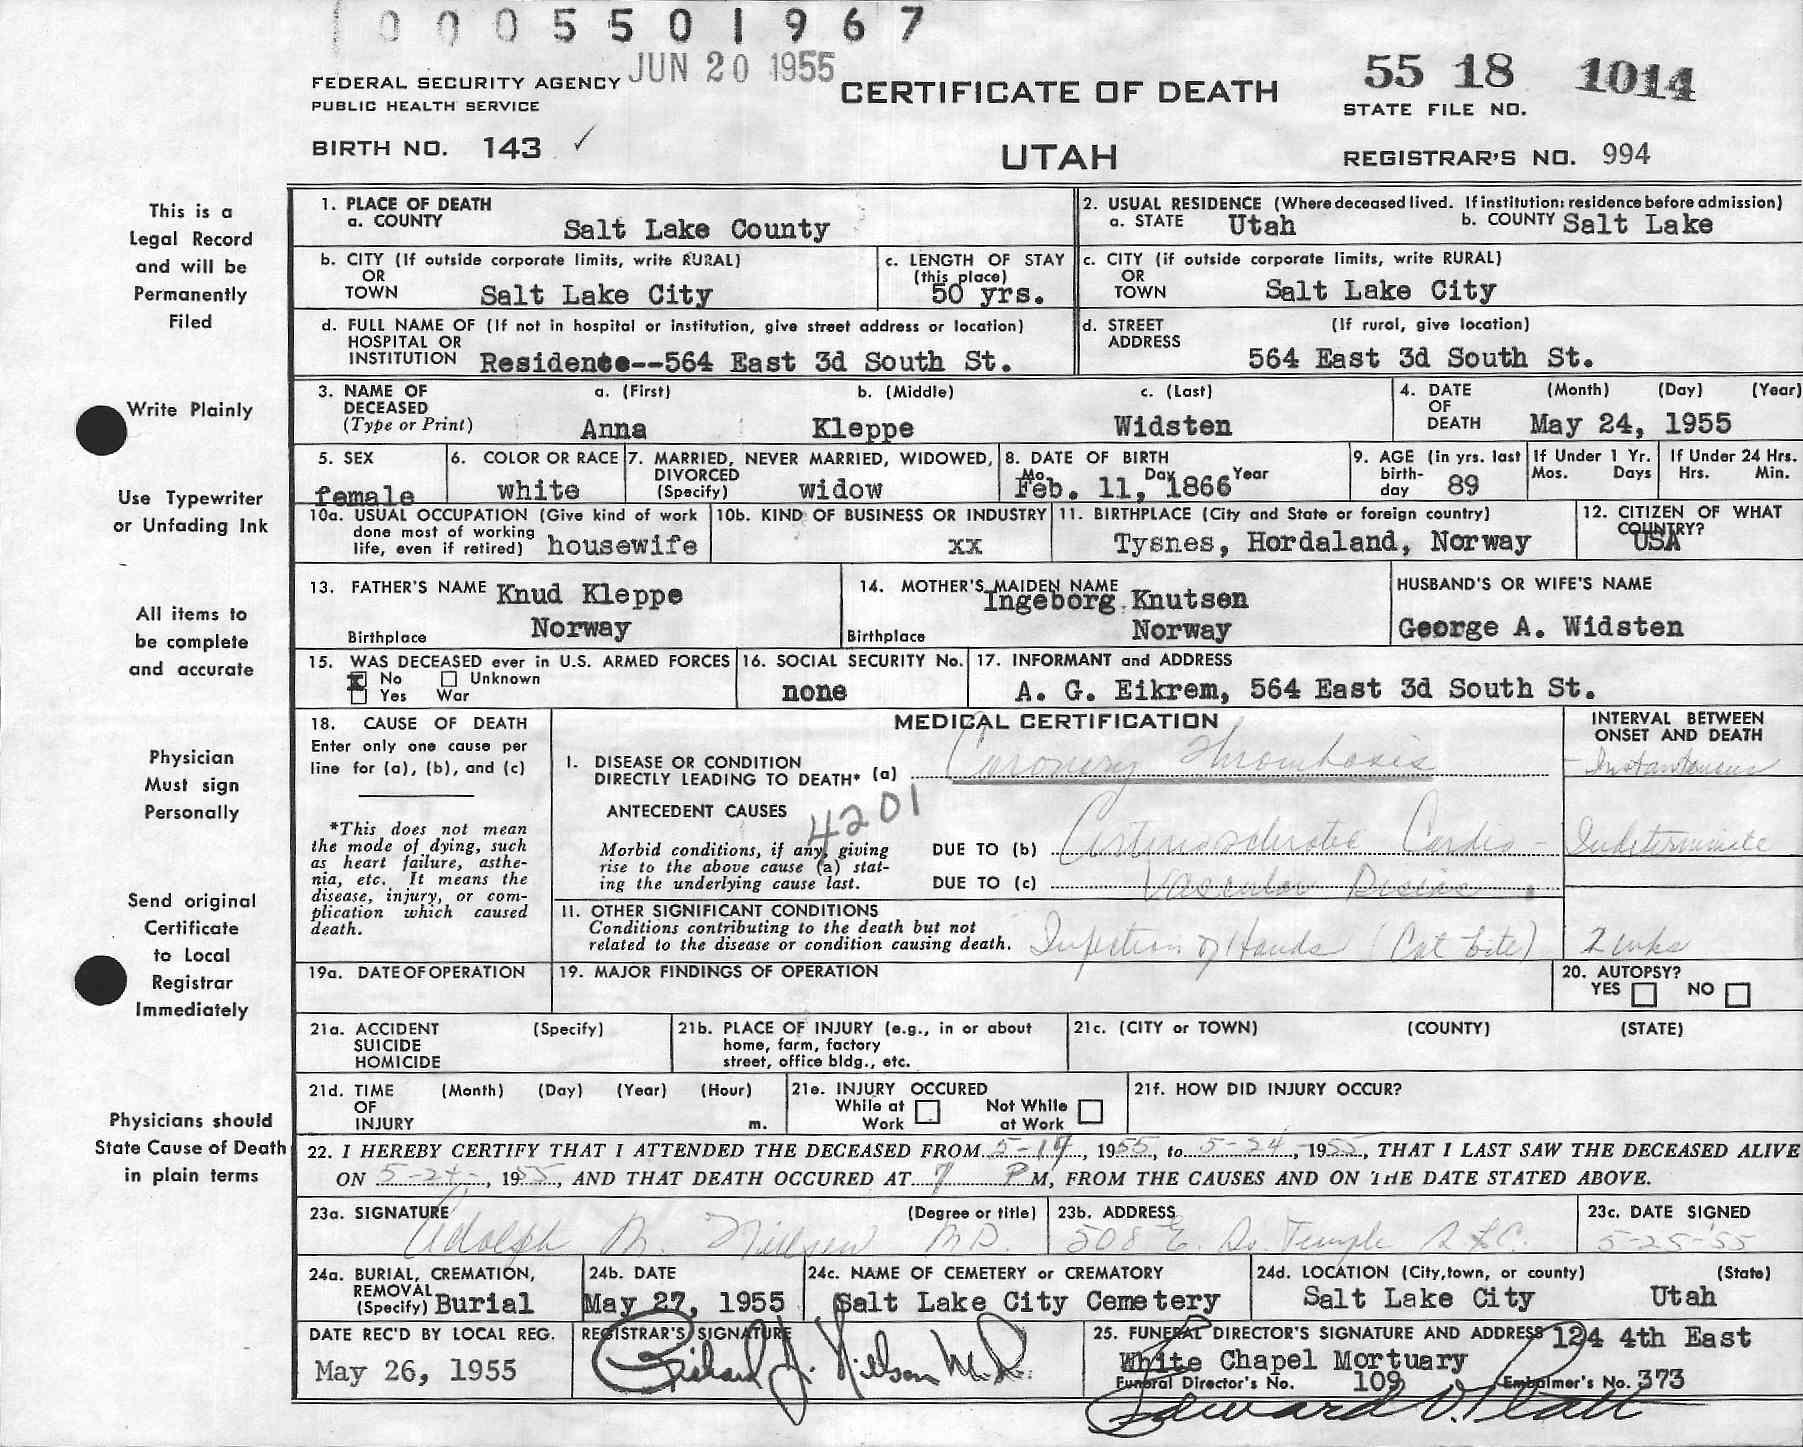 0005501967
JUN 20 1955
FEDERAL SECURITY AGENCY
PUBLIC HEALTH SERVICE
CERTIFICATE OF DEATH
55 18 1014
STATE FILE NO.
BIRTH NO. 143 ✓
UTAH
REGISTRAR'S NO. 994
This is a
Legal Record
and will be
Permanently
Filed
Write Plainly
Use Typewriter
or Unfading Ink
All items to
be complete
and accurate
Physician
Must sign
Personally
Send original
Certificate
to Local
Registrar
Immediately
Physicians should
State Cause of Death
in plain terms
1. PLACE OF DEATH
a. COUNTY Salt Lake County
2. USUAL RESIDENCE (Where deceased lived. If institution: residence before admission)
a. STATE Utah b. COUNTY Salt Lake
b. CITY (If outside corporate limits, write RURAL)
OR
TOWN Salt Lake City
c. LENGTH OF STAY
(this place)
50 yrs.
c. CITY (if outside corporate limits, write RURAL)
OR
TOWN Salt Lake City
d. FULL NAME OF (If not in hospital or institution, give street address or location)
HOSPITAL OR
INSTITUTION Residence--564 East 3d South St.
d. STREET (If rural, give location)
ADDRESS
564 East 3d South St.
3. NAME OF a. (First) b. (Middle) c. (Last)
DECEASED
(Type or Print) Anna Kleppe Widsten
4. DATE (Month) (Day) (Year)
OF
DEATH May 24, 1955
5. SEX
female
6. COLOR OR RACE
white
7. MARRIED, NEVER MARRIED, WIDOWED,
DIVORCED
(Specify) widow
8. DATE OF BIRTH
Mo. Day Year
Feb. 11, 1866
9. AGE (in yrs. last
birth-
day 89
If Under 1 Yr.
Mos. Days
If Under 24 Hrs.
Hrs. Min.
10a. USUAL OCCUPATION (Give kind of work
done most of working
life, even if retired) housewife
10b. KIND OF BUSINESS OR INDUSTRY
xx
11. BIRTHPLACE (City and State or foreign country)
Tysnes, Hordaland, Norway
12. CITIZEN OF WHAT
COUNTRY?
USA
13. FATHER'S NAME Knud Kleppe
Birthplace Norway
14. MOTHER'S MAIDEN NAME
Ingeborg Knutsen
Birthplace Norway
HUSBAND'S OR WIFE'S NAME
George A. Widsten
15. WAS DECEASED ever in U.S. ARMED FORCES
x No Unknown
Yes War
16. SOCIAL SECURITY No.
none
17. INFORMANT and ADDRESS
A. G. Eikrem, 564 East 3d South St.
18. CAUSE OF DEATH
Enter only one cause per
line for (a), (b), and (c)
*This does not mean
the mode of dying, such
as heart failure, asthe-
nia, etc. It means the
disease, injury, or com-
plication which caused
death.
MEDICAL CERTIFICATION
INTERVAL BETWEEN
ONSET AND DEATH
I. DISEASE OR CONDITION
DIRECTLY LEADING TO DEATH* (a) Coronary Thrombosis Instantaneous
ANTECEDENT CAUSES
4201
Morbid conditions, if any, giving
rise to the above cause (a) stat-
ing the underlying cause last.
DUE TO (b) Arteriosclerotic Cardio - Indeterminate
DUE TO (c) Vascular Disease
11. OTHER SIGNIFICANT CONDITIONS
Conditions contributing to the death but not
related to the disease or condition causing death. Infection of Hands (Cat bite) 2 wks
19a. DATE OF OPERATION
19. MAJOR FINDINGS OF OPERATION
20. AUTOPSY?
YES NO
21a. ACCIDENT (Specify)
SUICIDE
HOMICIDE
21b. PLACE OF INJURY (e.g., in or about
home, farm, factory
street, office bldg., etc.
21c. (CITY or TOWN) (COUNTY) (STATE)
21d. TIME (Month) (Day) (Year) (Hour)
OF
INJURY m.
21e. INJURY OCCURED
While at Not While
Work at Work
21f. HOW DID INJURY OCCUR?
22. I HEREBY CERTIFY THAT I ATTENDED THE DECEASED FROM 5-17, 1955, to 5-24, 1955, THAT I LAST SAW THE DECEASED ALIVE
ON 5-24, 1955, AND THAT DEATH OCCURED AT 7 P M, FROM THE CAUSES AND ON THE DATE STATED ABOVE.
23a. SIGNATURE (Degree or title)
Adolph M. Nielsen M.D.
23b. ADDRESS
508 E. So. Temple S L C.
23c. DATE SIGNED
5-25-55
24a. BURIAL, CREMATION,
REMOVAL
(Specify) Burial
24b. DATE
May 27, 1955
24c. NAME OF CEMETERY or CREMATORY
Salt Lake City Cemetery
24d. LOCATION (City, town, or county) (State)
Salt Lake City Utah
DATE REC'D BY LOCAL REG.
May 26, 1955
REGISTRAR'S SIGNATURE
Richard J. Nielson M.D.
25. FUNERAL DIRECTOR'S SIGNATURE AND ADDRESS 124 4th East
White Chapel Mortuary
Funeral Director's No. 109 Embalmer's No. 373
Edward V. Platt